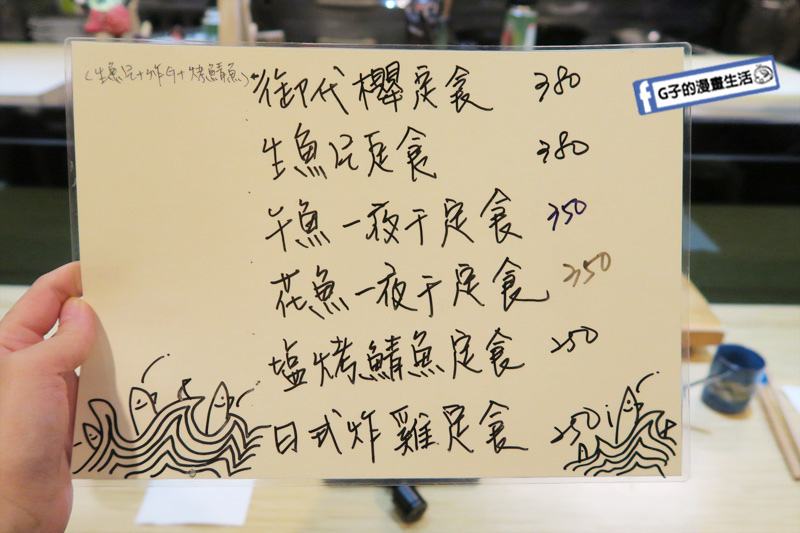 (生魚片+炸物+烤鯖魚)
御代櫻定食 380
生魚片定食 380
午魚一夜干定食 350
花魚一夜干定食 350
塩烤鯖魚定食 250
日式炸雞定食 250
G子的漫畫生活